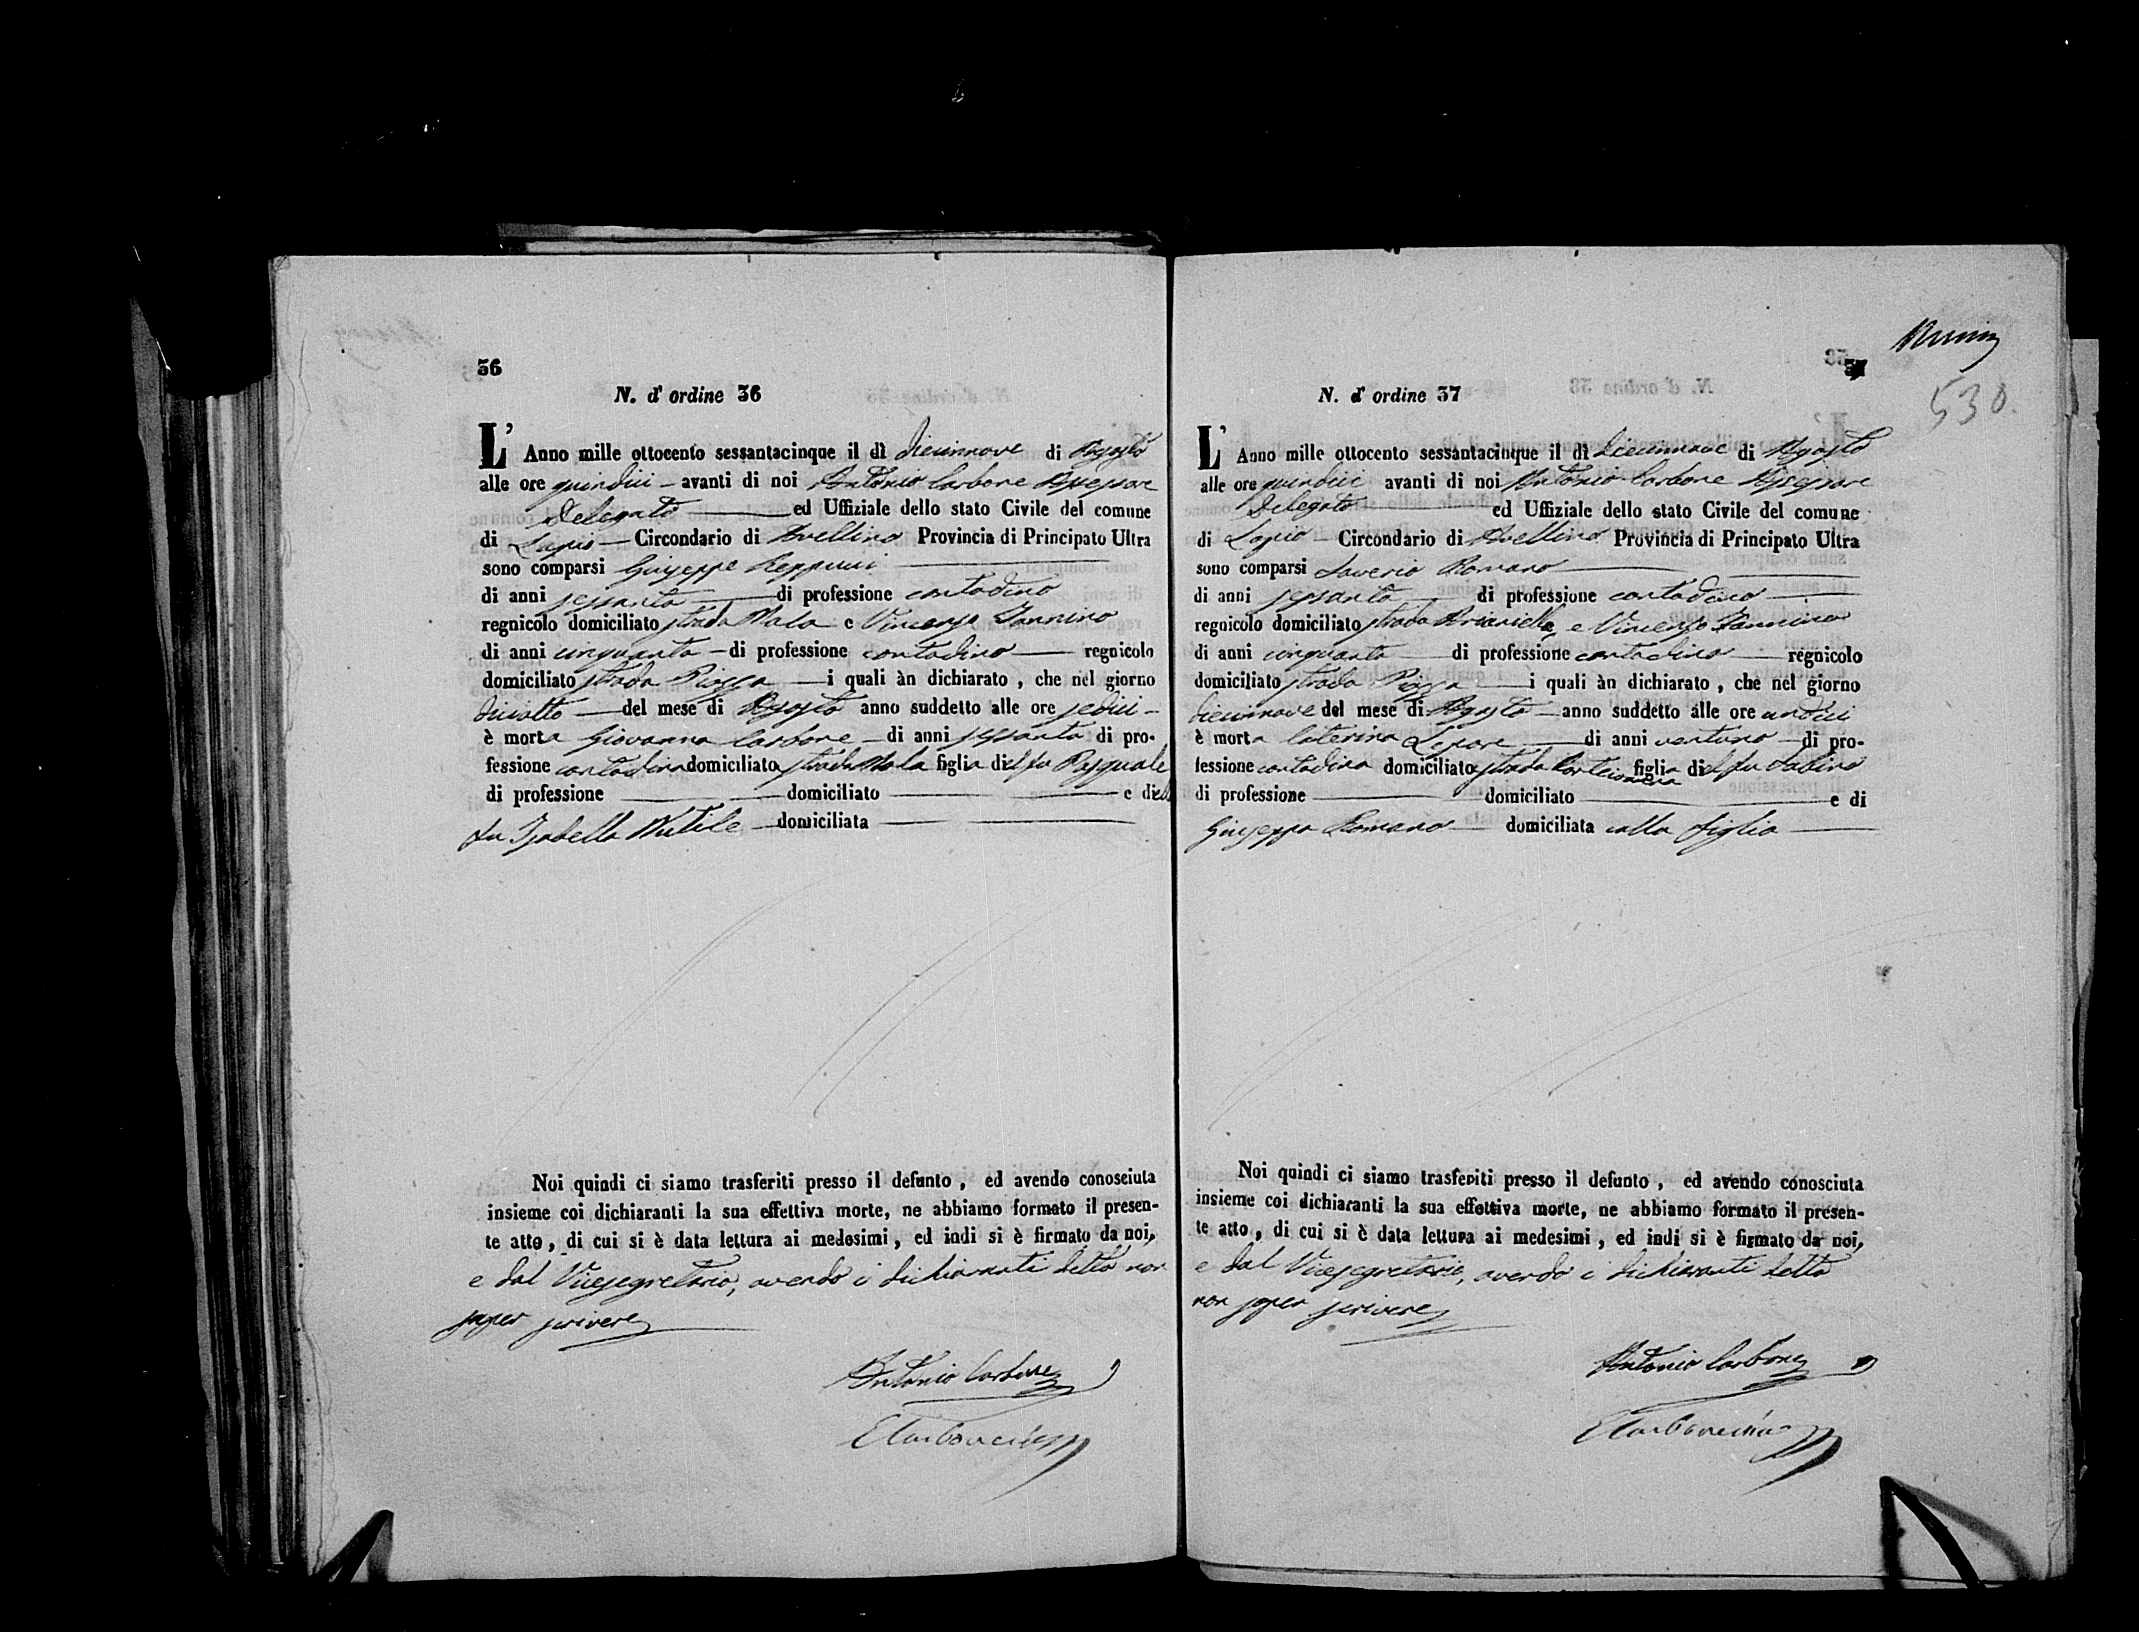 36
N. d' ordine 36
L' Anno mille ottocento sessantacinque il dì diecinnove di Agosto
alle ore quindici avanti di noi Antonio Carbone Assessore
Delegato ed Uffiziale dello stato Civile del comune
di Lapio Circondario di Avellino Provincia di Principato Ultra
sono comparsi Giuseppe
di anni sessanta di professione contadino
regnicolo domiciliato strada Nala e Vincenzo Iannino
di anni cinquanta di professione contadino regnicolo
domiciliato strada Piazza i quali àn dichiarato, che nel giorno
diciotto del mese di Agosto anno suddetto alle ore sedici
è morta Giovanna Carbone di anni sessanta di pro-
fessione contadina domiciliata strada Nala figlia del fu Pasquale
di professione domiciliato e della
fu Isabella Nutile domiciliata
Noi quindi ci siamo trasferiti presso il defunto, ed avendo conosciuta
insieme coi dichiaranti la sua effettiva morte, ne abbiamo formato il presen-
te atto, di cui si è data lettura ai medesimi, ed indi si è firmato da noi,
e dal Vicesegretario, avendo i dichiaranti detto non
saper scrivere
Antonio Carbone
37
530.
N. d' ordine 37
L' Anno mille ottocento sessantacinque il dì diecinnove di Agosto
alle ore quindici avanti di noi Antonio Carbone Assessore
Delegato ed Uffiziale dello stato Civile del comune
di Lapio Circondario di Avellino Provincia di Principato Ultra
sono comparsi Saverio Romano
di anni sessanta di professione contadino
regnicolo domiciliato strada Arianiella e Vincenzo Iannino
di anni cinquanta di professione contadino regnicolo
domiciliato strada Piazza i quali àn dichiarato, che nel giorno
diecinnove del mese di Agosto anno suddetto alle ore undici
è morta Caterina Lepore di anni ventuno di pro-
fessione contadina domiciliata strada figlia del fu Sabino
di professione domiciliato e di
Giuseppa Romano domiciliata colla figlia
Noi quindi ci siamo trasferiti presso il defunto, ed avendo conosciuta
insieme coi dichiaranti la sua effettiva morte, ne abbiamo formato il presen-
te atto, di cui si è data lettura ai medesimi, ed indi si è firmato da noi,
e dal Vicesegretario, avendo i dichiaranti detto
non saper scrivere
Antonio Carbone